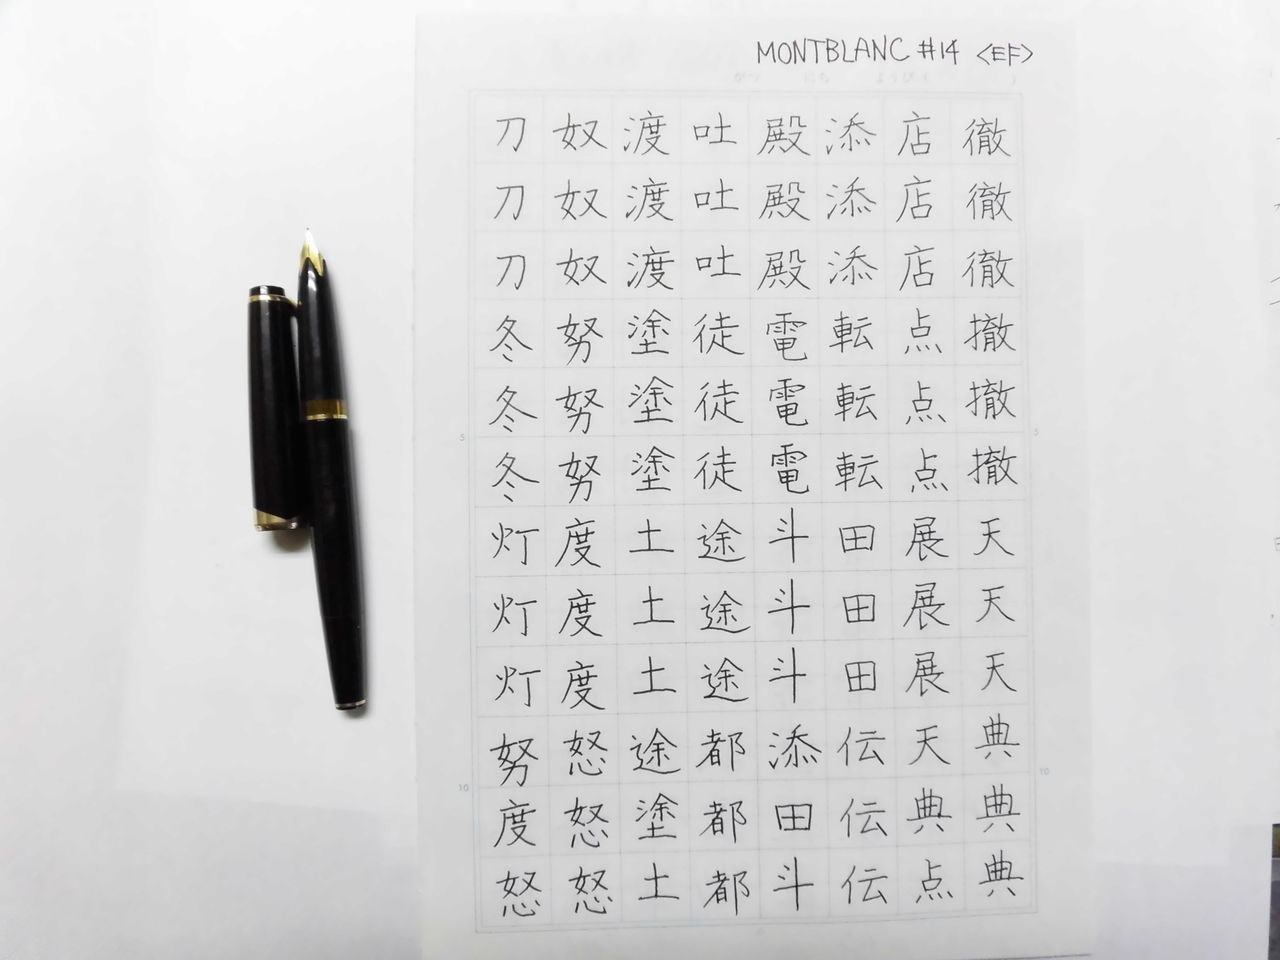 MONTBLANC #14 <EF>
がつ にち ようび ( )
徹徹徹撤撤撤天天天典典典
店店店点点点展展展天典点
添添添転転転田田田伝伝伝
殿殿殿電電電斗斗斗添田斗
吐吐吐徒徒徒途途途都都都
渡渡渡塗塗塗土土土途塗土
奴奴奴努努努度度度怒怒怒
刀刀刀冬冬冬灯灯灯努度怒
5
10
5
10